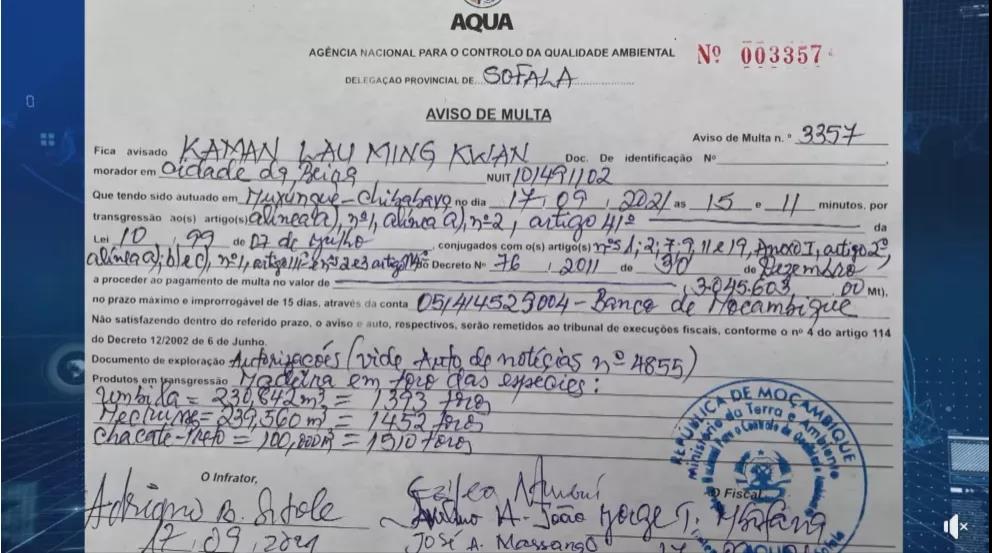 AQUA
AGÊNCIA NACIONAL PARA O CONTROLO DA QUALIDADE AMBIENTAL
Nº 003357
DELEGAÇAO PROVINCIAL DE SOFALA
AVISO DE MULTA
Aviso de Multa n. º 3357
Fica avisado KAMAN LAU MING KWAN Doc. De identificação Nº
morador em Cidade da Beira NUIT 101491102
Que tendo sido autuado em Muxungue-Chibabava no dia 17, 09, 2021 as 15 e 11 minutos, por
transgressão ao(s) artigo(s) alínea a), nº1, alínea a), nº2, artigo 41º da
Lei 10, 99 de 07 de Julho, conjugados com o(s) artigo(s) nºs 1; 2; 7; 9, 11 e 19, Anexo I, artigo 2º,
alínea a); b) e c), nº1, artigo Decreto Nº 76, 2011 de 30 de Dezembro
a proceder ao pagamento de multa no valor de 3.045.603,00 Mt),
no prazo máximo e improrrogável de 15 dias, através da conta 0514145 004 - Banco de Moçambique
Não satisfazendo dentro do referido prazo, o aviso e auto, respectivos, serão remetidos ao tribunal de execuções fiscais, conforme o nº 4 do artigo 114
do Decreto 12/2002 de 6 de Junho.
Documento de exploração Autorizações (vide Auto de notícias nº 4855)
Produtos em transgressão Madeira em toro das espécies:
Umbila = 230,842 m³ = 1393 toros
Mecrusse = 239,560 m³ = 1452 toros
Chacate-Preto = 100,800 m³ = 1510 toros
REPÚBLICA DE MOÇAMBIQUE
Ministério da Terra e Ambiente
O Infrator,
O Fiscal
Adriano B. Sitole
17, 09, 2021
A. João
Jorge T.
José A. Massango
AQUA